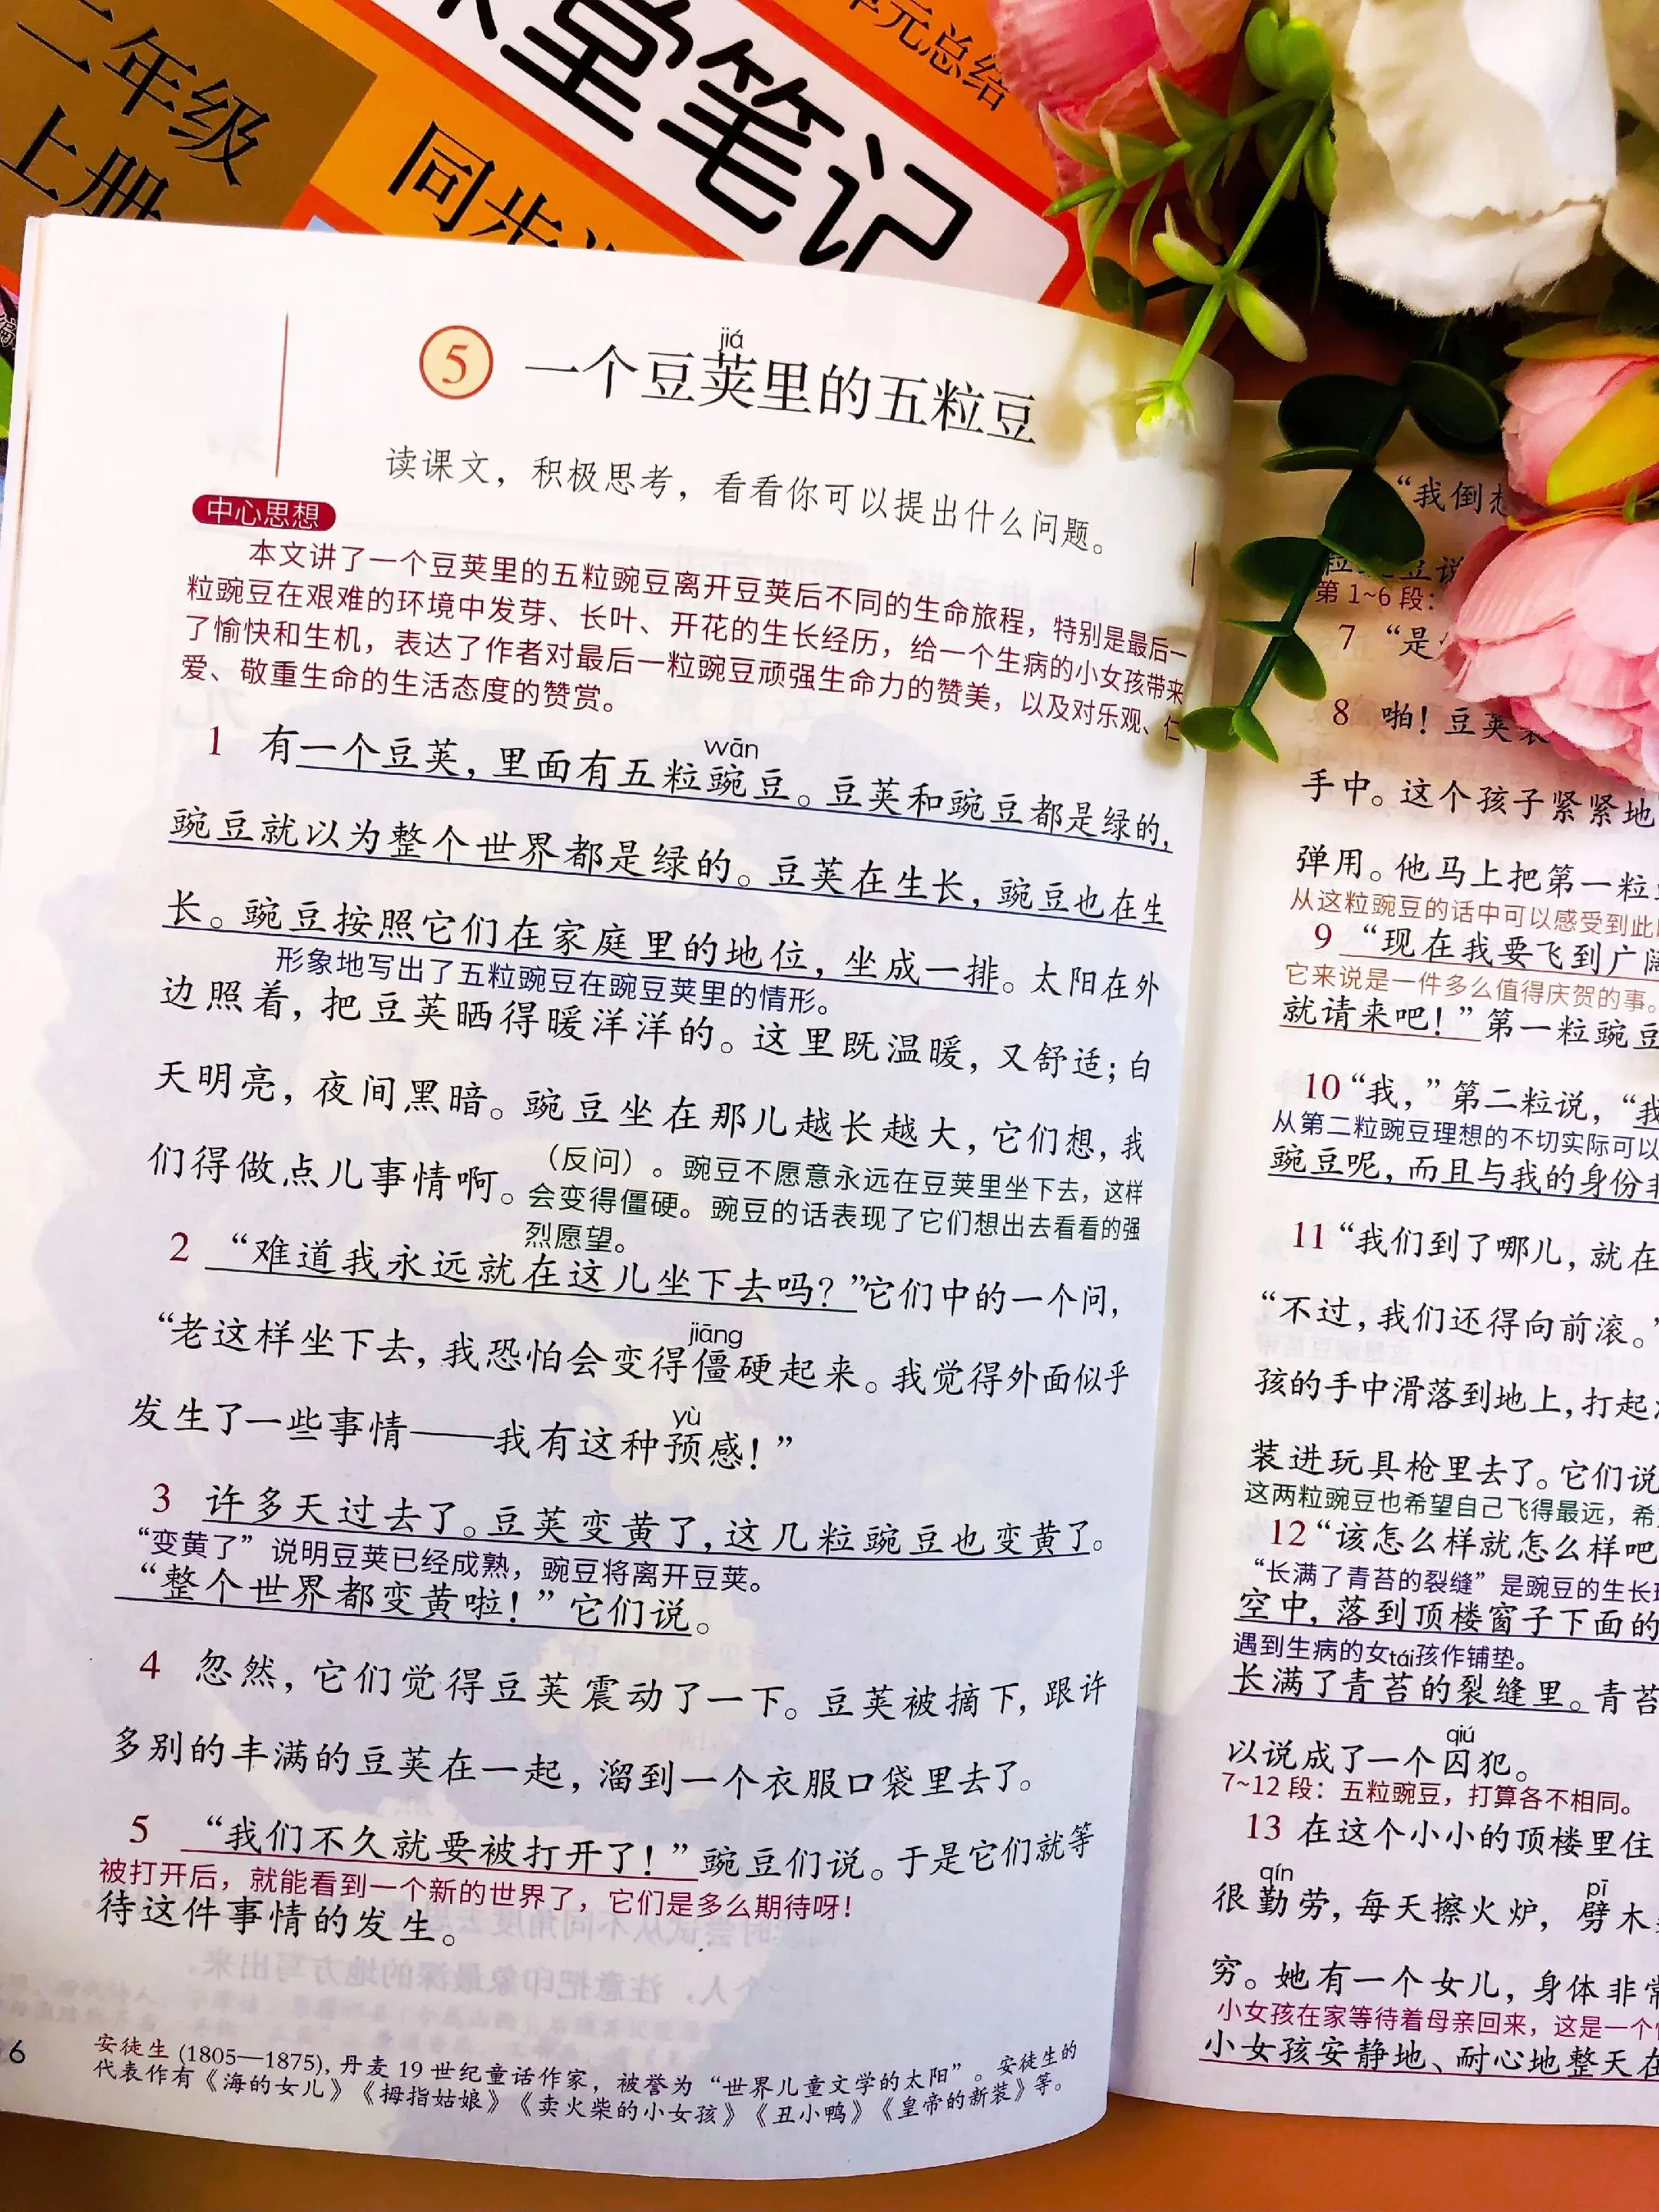 二年级
上册
堂笔记
单元总结
同步
jiá
5 一个豆荚里的五粒豆
读课文，积极思考，看看你可以提出什么问题。
中心思想
本文讲了一个豆荚里的五粒豌豆离开豆荚后不同的生命旅程，特别是最后一
粒豌豆在艰难的环境中发芽、长叶、开花的生长经历，给一个生病的小女孩带来
了愉快和生机，表达了作者对最后一粒豌豆顽强生命力的赞美，以及对乐观、仁
爱、敬重生命的生活态度的赞赏。
wān
1 有一个豆荚，里面有五粒豌豆。豆荚和豌豆都是绿的，
豌豆就以为整个世界都是绿的。豆荚在生长，豌豆也在生
长。豌豆按照它们在家庭里的地位，坐成一排。太阳在外
形象地写出了五粒豌豆在豌豆荚里的情形。
边照着，把豆荚晒得暖洋洋的。这里既温暖，又舒适；白
天明亮，夜间黑暗。豌豆坐在那儿越长越大，它们想，我
们得做点儿事情啊。
（反问）。豌豆不愿意永远在豆荚里坐下去，这样
会变得僵硬。豌豆的话表现了它们想出去看看的强
烈愿望。
2 “难道我永远就在这儿坐下去吗？”它们中的一个问，
jiāng
“老这样坐下去，我恐怕会变得僵硬起来。我觉得外面似乎
yù
发生了一些事情——我有这种预感！”
3 许多天过去了。豆荚变黄了，这几粒豌豆也变黄了。
“变黄了”说明豆荚已经成熟，豌豆将离开豆荚。
“整个世界都变黄啦！”它们说。
4 忽然，它们觉得豆荚震动了一下。豆荚被摘下，跟许
多别的丰满的豆荚在一起，溜到一个衣服口袋里去了。
5 “我们不久就要被打开了！”豌豆们说。于是它们就等
被打开后，就能看到一个新的世界了，它们是多么期待呀！
待这件事情的发生。
6
安徒生(1805—1875)，丹麦19世纪童话作家，被誉为“世界儿童文学的太阳”。安徒生的
代表作有《海的女儿》《拇指姑娘》《卖火柴的小女孩》《丑小鸭》《皇帝的新装》等。
“我倒想
豆说
第1~6段：
7 “是
8 啪！豆荚裂
手中。这个孩子紧紧地
弹用。他马上把第一粒
从这粒豌豆的话中可以感受到此
9 “现在我要飞到广阔
它来说是一件多么值得庆贺的事。
就请来吧！”第一粒豌豆
10 “我，”第二粒说，“我
从第二粒豌豆理想的不切实际可以
豌豆呢，而且与我的身份非
11 “我们到了哪儿，就在
“不过，我们还得向前滚。”
孩的手中滑落到地上，打起
装进玩具枪里去了。它们说
这两粒豌豆也希望自己飞得最远，希
12 “该怎么样就怎么样吧
“长满了青苔的裂缝”是豌豆的生长环
空中，落到顶楼窗子下面的
遇到生病的女孩作铺垫。
tái
长满了青苔的裂缝里。青苔
qiú
以说成了一个囚犯。
7~12段：五粒豌豆，打算各不相同。
13 在这个小小的顶楼里住
qín pī
很勤劳，每天擦火炉，劈木
穷。她有一个女儿，身体非常
小女孩在家等待着母亲回来，这是一个
小女孩安静地、耐心地整天在